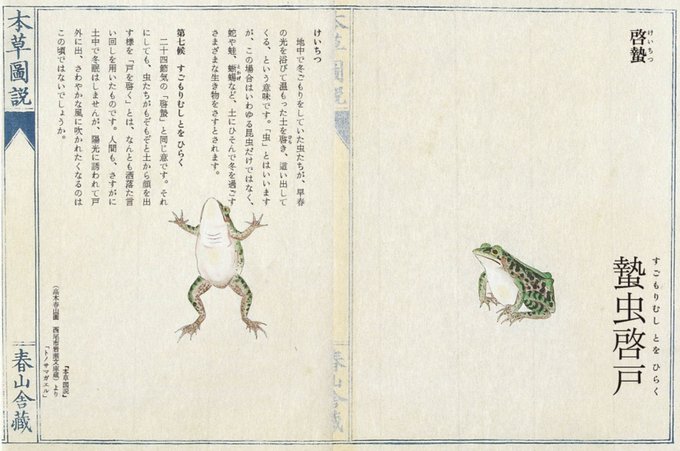 啓蟄
けいちつ
蟄虫啓戸
すごもりむし とを ひらく
けいちつ
地中で冬ごもりをしていた虫たちが、早春
の光を浴びて温もった土を啓き、這い出して
くる、という意味です。「虫」とはいいます
が、この場合はいわゆる昆虫だけではなく、
蛇や蛙、蜥蜴など、土にひそんで冬を過ごす
さまざまな生き物をさすとされます。
第七候 すごもりむし とを ひらく
二十四節気の「啓蟄」と同じ意です。それ
にしても、虫たちがもぞもぞと土から顔を出
す様を「戸を啓く」とは、なんとも洒落た言
い回しを用いたものです。人間も、さすがに
土中で冬眠はしませんが、陽光に誘われて戸
外に出、さわやかな風に吹かれたくなるのは
この頃ではないでしょうか。
『本草図説』
(高木春山画 西尾市岩瀬文庫蔵)より
「トノサマガエル」
本草圖説
春山舎藏